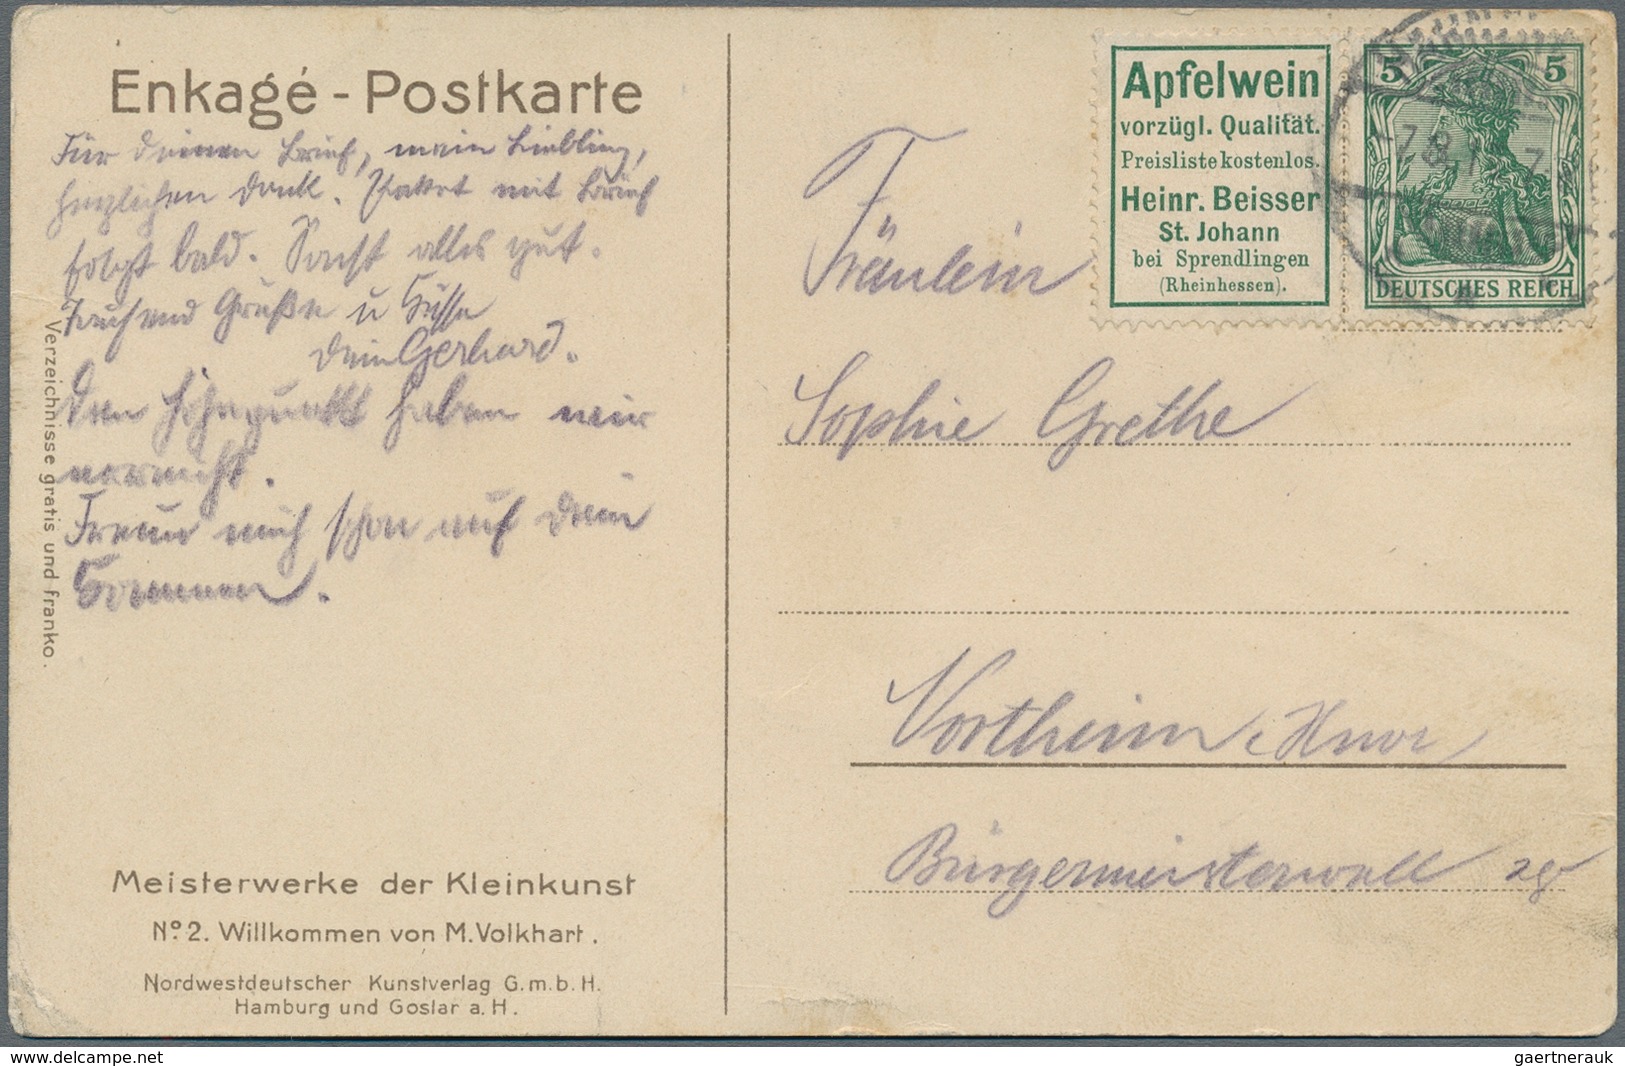 Enkagé - Postkarte
Für deinen Brief, mein Liebling,
herzlichen Dank. Paket mit Brief
folgt bald. Sonst alles gut.
Tausend Grüße u Küsse
dein Gerhard.
Den Höhepunkt haben wir
erreicht.
Freue mich schon auf dein
Kommen.
Verzeichnisse gratis und franko.
Meisterwerke der Kleinkunst
Nº 2. Willkommen von M. Volkhart.
Nordwestdeutscher Kunstverlag G.m.b.H.
Hamburg und Goslar a.H.
Apfelwein
vorzügl. Qualität.
Preisliste kostenlos.
Heinr. Beisser
St. Johann
bei Sprendlingen
(Rheinhessen).
5 5
DEUTSCHES REICH
Fräulein
Sophie Grethe
Northeim
Bürgermeisterwall
gaertnerauk @ www.delcampe.net